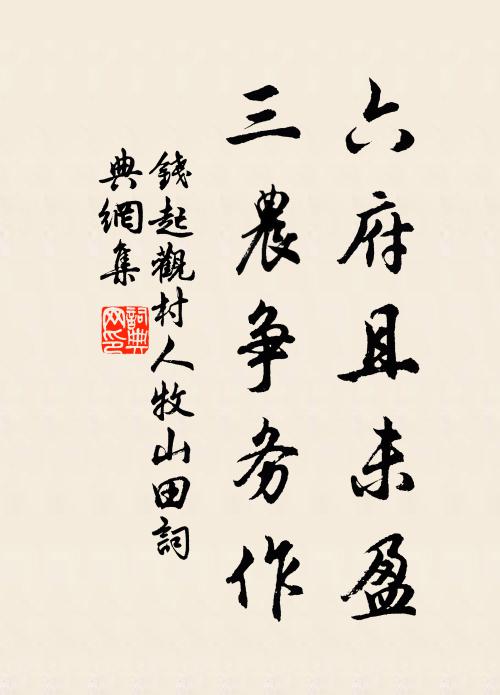 六府且未盈
三農争务作
錢起觀村人牧山田詞
典網集
詞典
网印